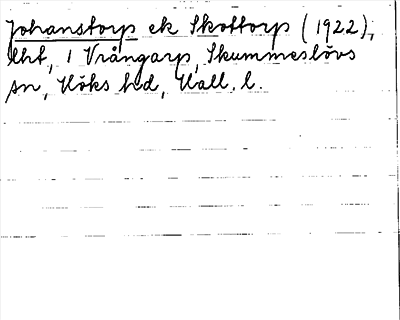 Johanstorp ek Skottorp (1922),
lht, 1 Vrångarp, Skummeslövs
sn, Höks hd, Hall. l.